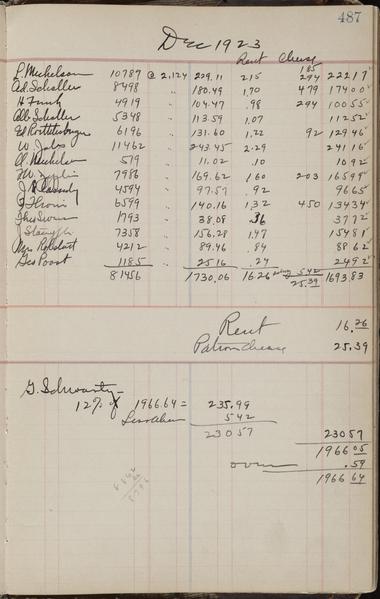 487
Dec 1923
Rent Cheese
185
P. Mickelson 10787 @ 2,124 229.11 2.15 294 222.17
Ad. Schaller 8498 " 180.49 1.70 479 174.00
H Funk 4919 " 104.47 .98 294 100.55
Alb Schaller 5348 " 113.59 1.07 112.52
Ed 6196 " 131.60 1.22 92 129.46
W. Jabs 11462 " 243.45 2.29 241.16
Mickelson 519 " 11.02 .10 10.92
7986 " 169.62 1.60 203 165.99
4594 " 97.57 .92 96.65
6599 " 140.16 1.32 450 134.34
1793 " 38.08 .36 37.72
7358 " 156.28 1.47 154.81
Mrs 4212 " 89.46 .84 88.62
Geo Post 1185 " 25.16 .24 24.92
81456 1730.06 16.26 5.42 1693.83
25.39
Rent 16.26
Patron Cheese 25.39
G. Schwartz
12% of 1966.64 = 235.99
Less 5 42
230 57 230 57
1966 05
over .59
1966 64